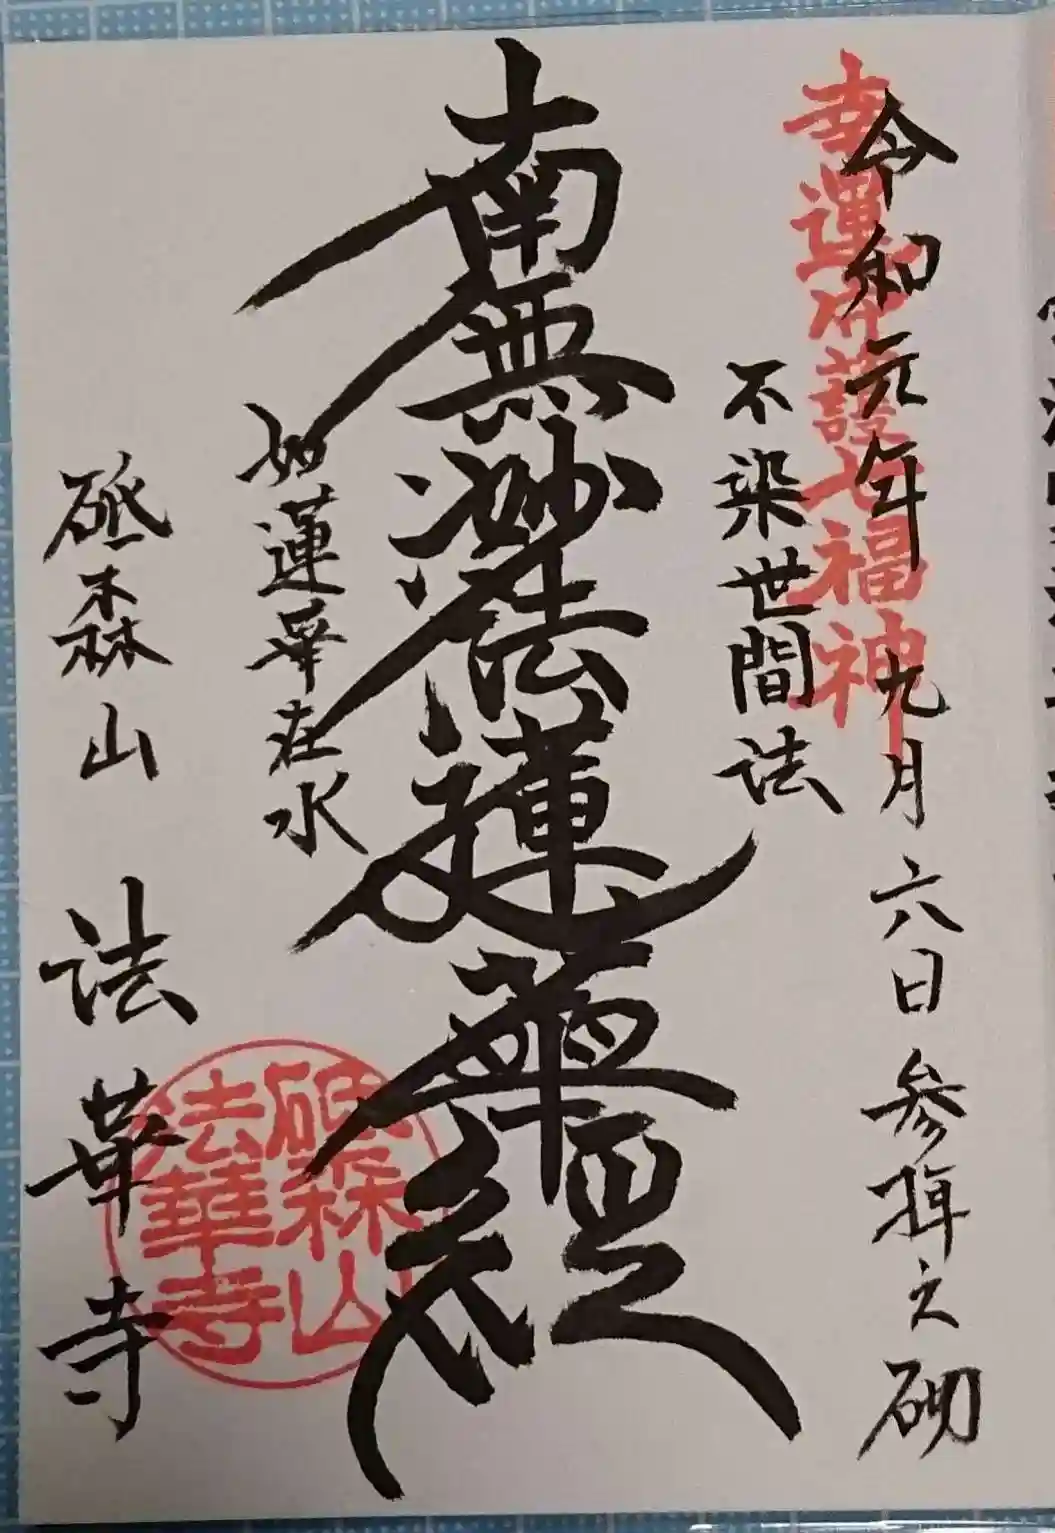 令和元年九月六日参拝之砌
幸運守護七福神
不染世間法
南無妙法蓮華経
如蓮華在水
砥森山 法華寺
砥森山
法華寺